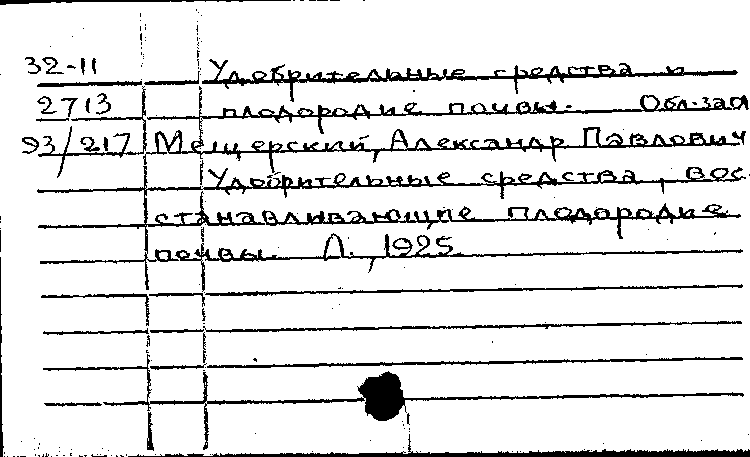 32-11 Удобрительные средства и
2713 плодородие почвы. Обл.-заг
93/217 Мещерский, Александр Павлович
Удобрительные средства, вос-
станавливающие плодородие
почвы. Л., 1925.